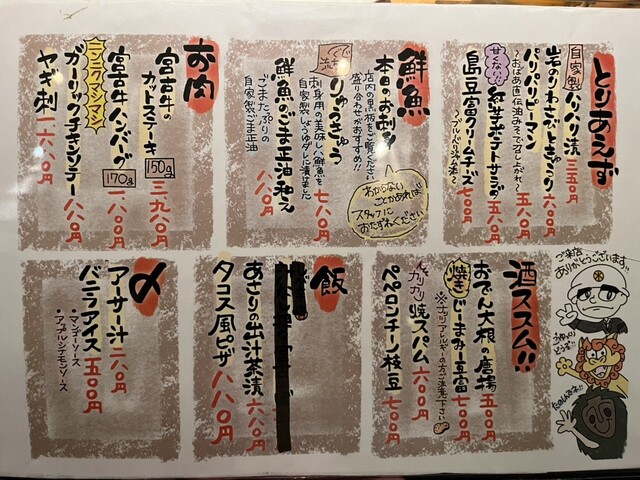 とりあえず
自家製 パリパリ漬 三五〇円
岩のりわさびきゅうり 六〇〇円
パリパリピーマン 五八〇円
～おばあ直伝油みそで召し上がれ～
甘くない!! 紅芋ポテトサラダ 五八〇円
島豆富クリームチーズ 七〇〇円
鮮魚
本日のお刺身
店内の黒板をご覧ください
盛り合わせがおすすめ!!
りゅうきゅう 七八〇円
刺身用の美味しい鮮魚を
自家製しょうゆダレに漬けました
鮮魚のごま正油和え 八八〇円
ごまたっぷりの
自家製ごま正油
わからない
ことがあれば
スタッフに
おたずねください
お肉
宮古牛の
カットステーキ 150g 三九八〇円
宮古牛ハンバーグ 170g 一八八〇円
ニンニクマシマシ
ガーリックチキンソテー 八八〇円
ヤギ刺 一六八〇円
酒ススム!!
おでん大根の唐揚 五〇〇円
焼き じーまみー豆富 七〇〇円
※ナッツアレルギーの方ご注意下さい
カリカリ 焼スパム 六〇〇円
ペペロンチーノ枝豆 七〇〇円
飯
あさりの出汁茶漬 六八〇円
タコス風ピザ 八八〇円
〆
アーサー汁 二八〇円
バニラアイス 五〇〇円
・マンゴーソース
・アップルシナモンソース
ご来店
ありがとうございます!!